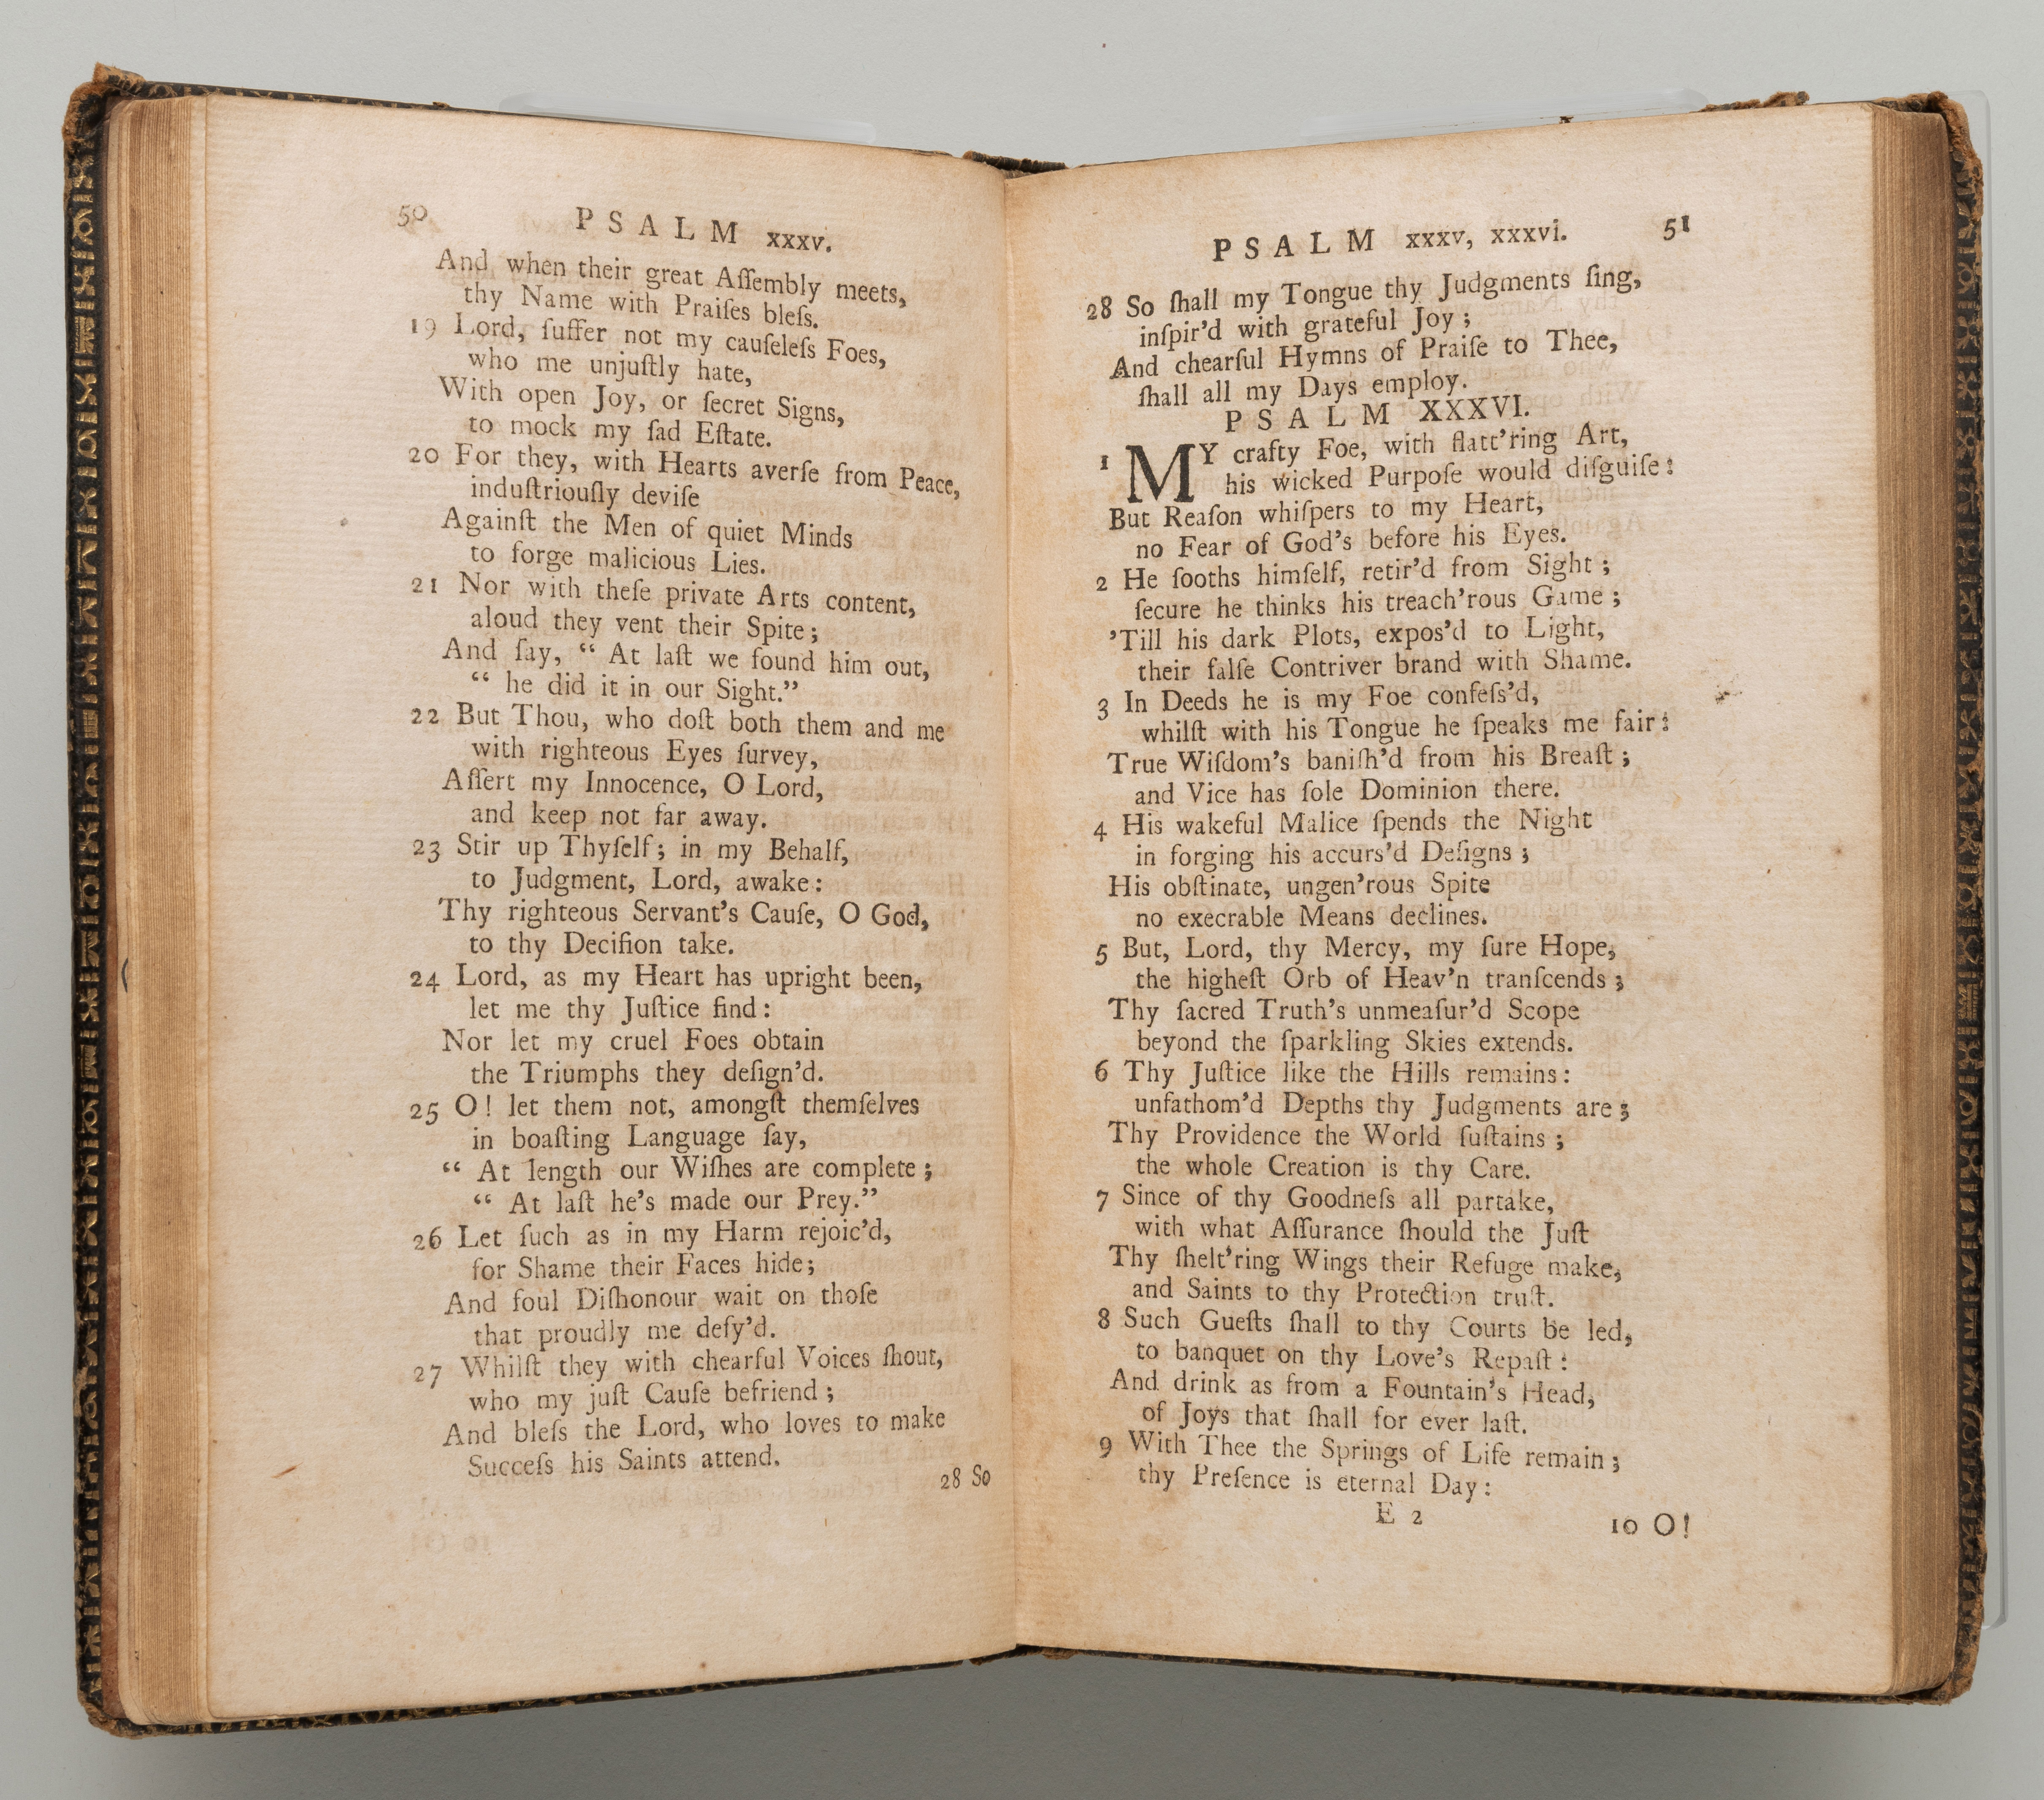 50 PSALM xxxv.
And when their great Aſſembly meets,
thy Name with Praiſes bleſs.
19 Lord, ſuffer not my cauſeleſs Foes,
who me unjuſtly hate,
With open Joy, or ſecret Signs,
to mock my ſad Eſtate.
20 For they, with Hearts averſe from Peace,
induſtriouſly deviſe
Againſt the Men of quiet Minds
to forge malicious Lies.
21 Nor with theſe private Arts content,
aloud they vent their Spite;
And ſay, “ At laſt we found him out,
“ he did it in our Sight.”
22 But Thou, who doſt both them and me
with righteous Eyes ſurvey,
Aſſert my Innocence, O Lord,
and keep not far away.
23 Stir up Thyſelf; in my Behalf,
to Judgment, Lord, awake:
Thy righteous Servant’s Cauſe, O God,
to thy Deciſion take.
24 Lord, as my Heart has upright been,
let me thy Juſtice find:
Nor let my cruel Foes obtain
the Triumphs they deſign’d.
25 O! let them not, amongſt themſelves
in boaſting Language ſay,
“ At length our Wiſhes are complete;
“ At laſt he’s made our Prey.”
26 Let ſuch as in my Harm rejoic’d,
for Shame their Faces hide;
And foul Diſhonour wait on thoſe
that proudly me defy’d.
27 Whilſt they with chearful Voices ſhout,
who my juſt Cauſe befriend;
And bleſs the Lord, who loves to make
Succeſs his Saints attend.
28 So
PSALM xxxv, xxxvi. 51
28 So ſhall my Tongue thy Judgments ſing,
inſpir’d with grateful Joy;
And chearful Hymns of Praiſe to Thee,
ſhall all my Days employ.
PSALM XXXVI.
1 MY crafty Foe, with flatt’ring Art,
his wicked Purpoſe would diſguiſe:
But Reaſon whiſpers to my Heart,
no Fear of God’s before his Eyes.
2 He ſooths himſelf, retir’d from Sight;
ſecure he thinks his treach’rous Game;
’Till his dark Plots, expos’d to Light,
their falſe Contriver brand with Shame.
3 In Deeds he is my Foe confeſs’d,
whilſt with his Tongue he ſpeaks me fair:
True Wiſdom’s baniſh’d from his Breaſt;
and Vice has ſole Dominion there.
4 His wakeful Malice ſpends the Night
in forging his accurs’d Deſigns;
His obſtinate, ungen’rous Spite
no execrable Means declines.
5 But, Lord, thy Mercy, my ſure Hope,
the higheſt Orb of Heav’n tranſcends;
Thy ſacred Truth’s unmeaſur’d Scope
beyond the ſparkling Skies extends.
6 Thy Juſtice like the Hills remains:
unfathom’d Depths thy Judgments are;
Thy Providence the World ſuſtains;
the whole Creation is thy Care.
7 Since of thy Goodneſs all partake,
with what Aſſurance ſhould the Juſt
Thy ſhelt’ring Wings their Refuge make,
and Saints to thy Protection truſt.
8 Such Gueſts ſhall to thy Courts be led,
to banquet on thy Love’s Repaſt:
And drink as from a Fountain’s Head,
of Joys that ſhall for ever laſt.
9 With Thee the Springs of Life remain;
thy Preſence is eternal Day:
E 2
10 O!